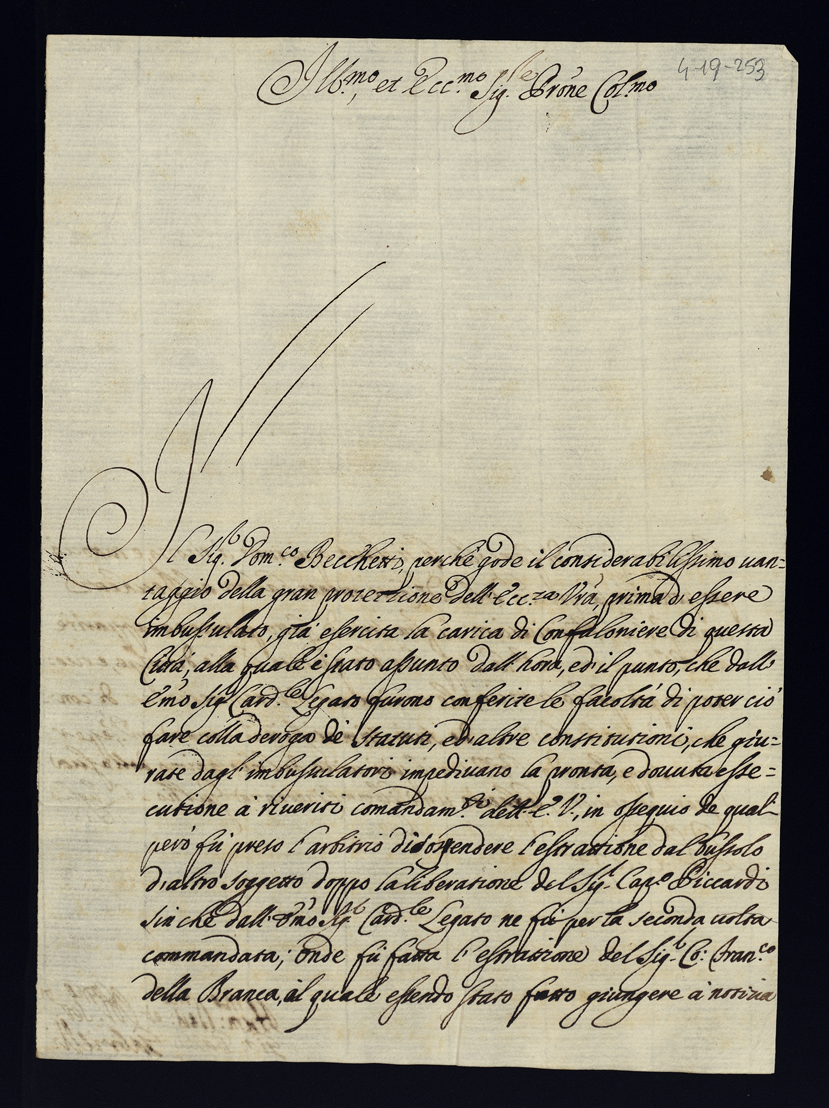 4-19-253
Ill.mo, et Ecc.mo Sig.re Prone Col.mo
Il Sig.r Dom.co Becchetti, perche gode il considerabilissimo uan=
taggio della gran protettione dell'Ecc.za Vrã, prima d'essere
imbussulato, già esercita la carica di Confaloniere di questa
Città, alla quale è stato assunto dall'hora, ed il punto, che dall'
e.mo Sig.r Card.le Legato furono conferite le facoltà di poter ciò
fare colla deroga de Statuti, ed altre constitutioni, che giu=
rate dagl'imbussulatori impediuano la pronta, e douuta esse=
cutione à riueriti comandam.ti dell'E. V., in ossequio de quali
però fù preso l'arbitrio di sospendere l'estrattione dal bussolo
d'altro soggetto doppo la liberatione del Sig.r Cap.o Piccardi
sin che dall' e.mo Sig.r Card.le Legato ne fù per la seconda uolta
commandata; onde fù fatta l'estrattione del Sig.r Co: Fran.co
della Branca, il quale essendo stato fatto giungere à notitia